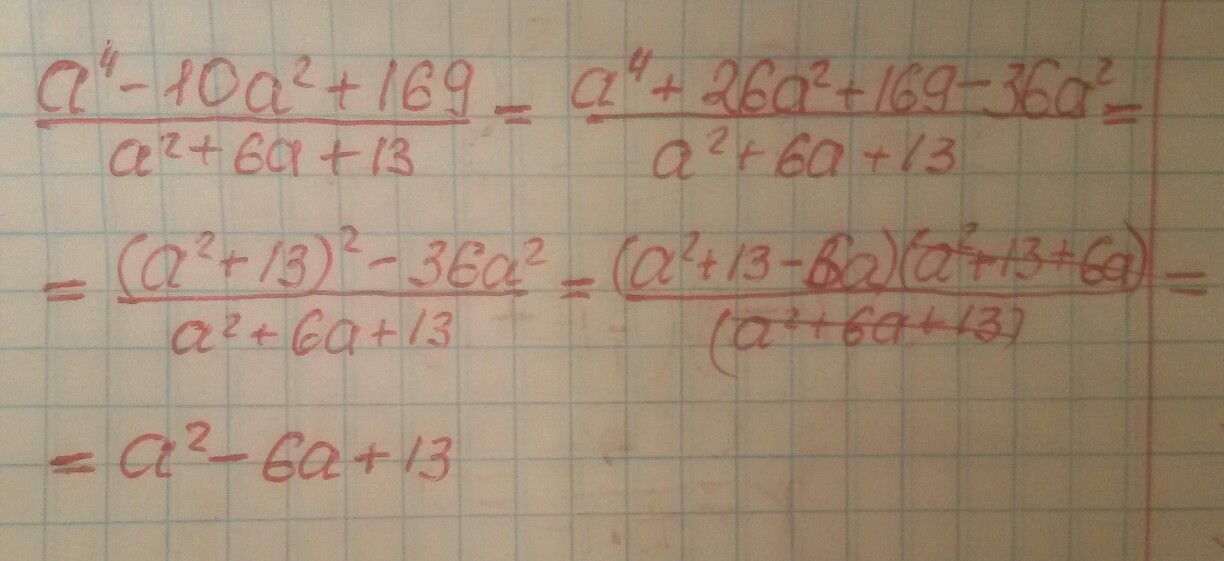 a⁴ - 10a² + 169 / a² + 6a + 13 = a⁴ + 26a² + 169 - 36a² / a² + 6a + 13 =
= (a² + 13)² - 36a² / a² + 6a + 13 = (a² + 13 - 6a)(a² + 13 + 6a) / (a² + 6a + 13) =
= a² - 6a + 13